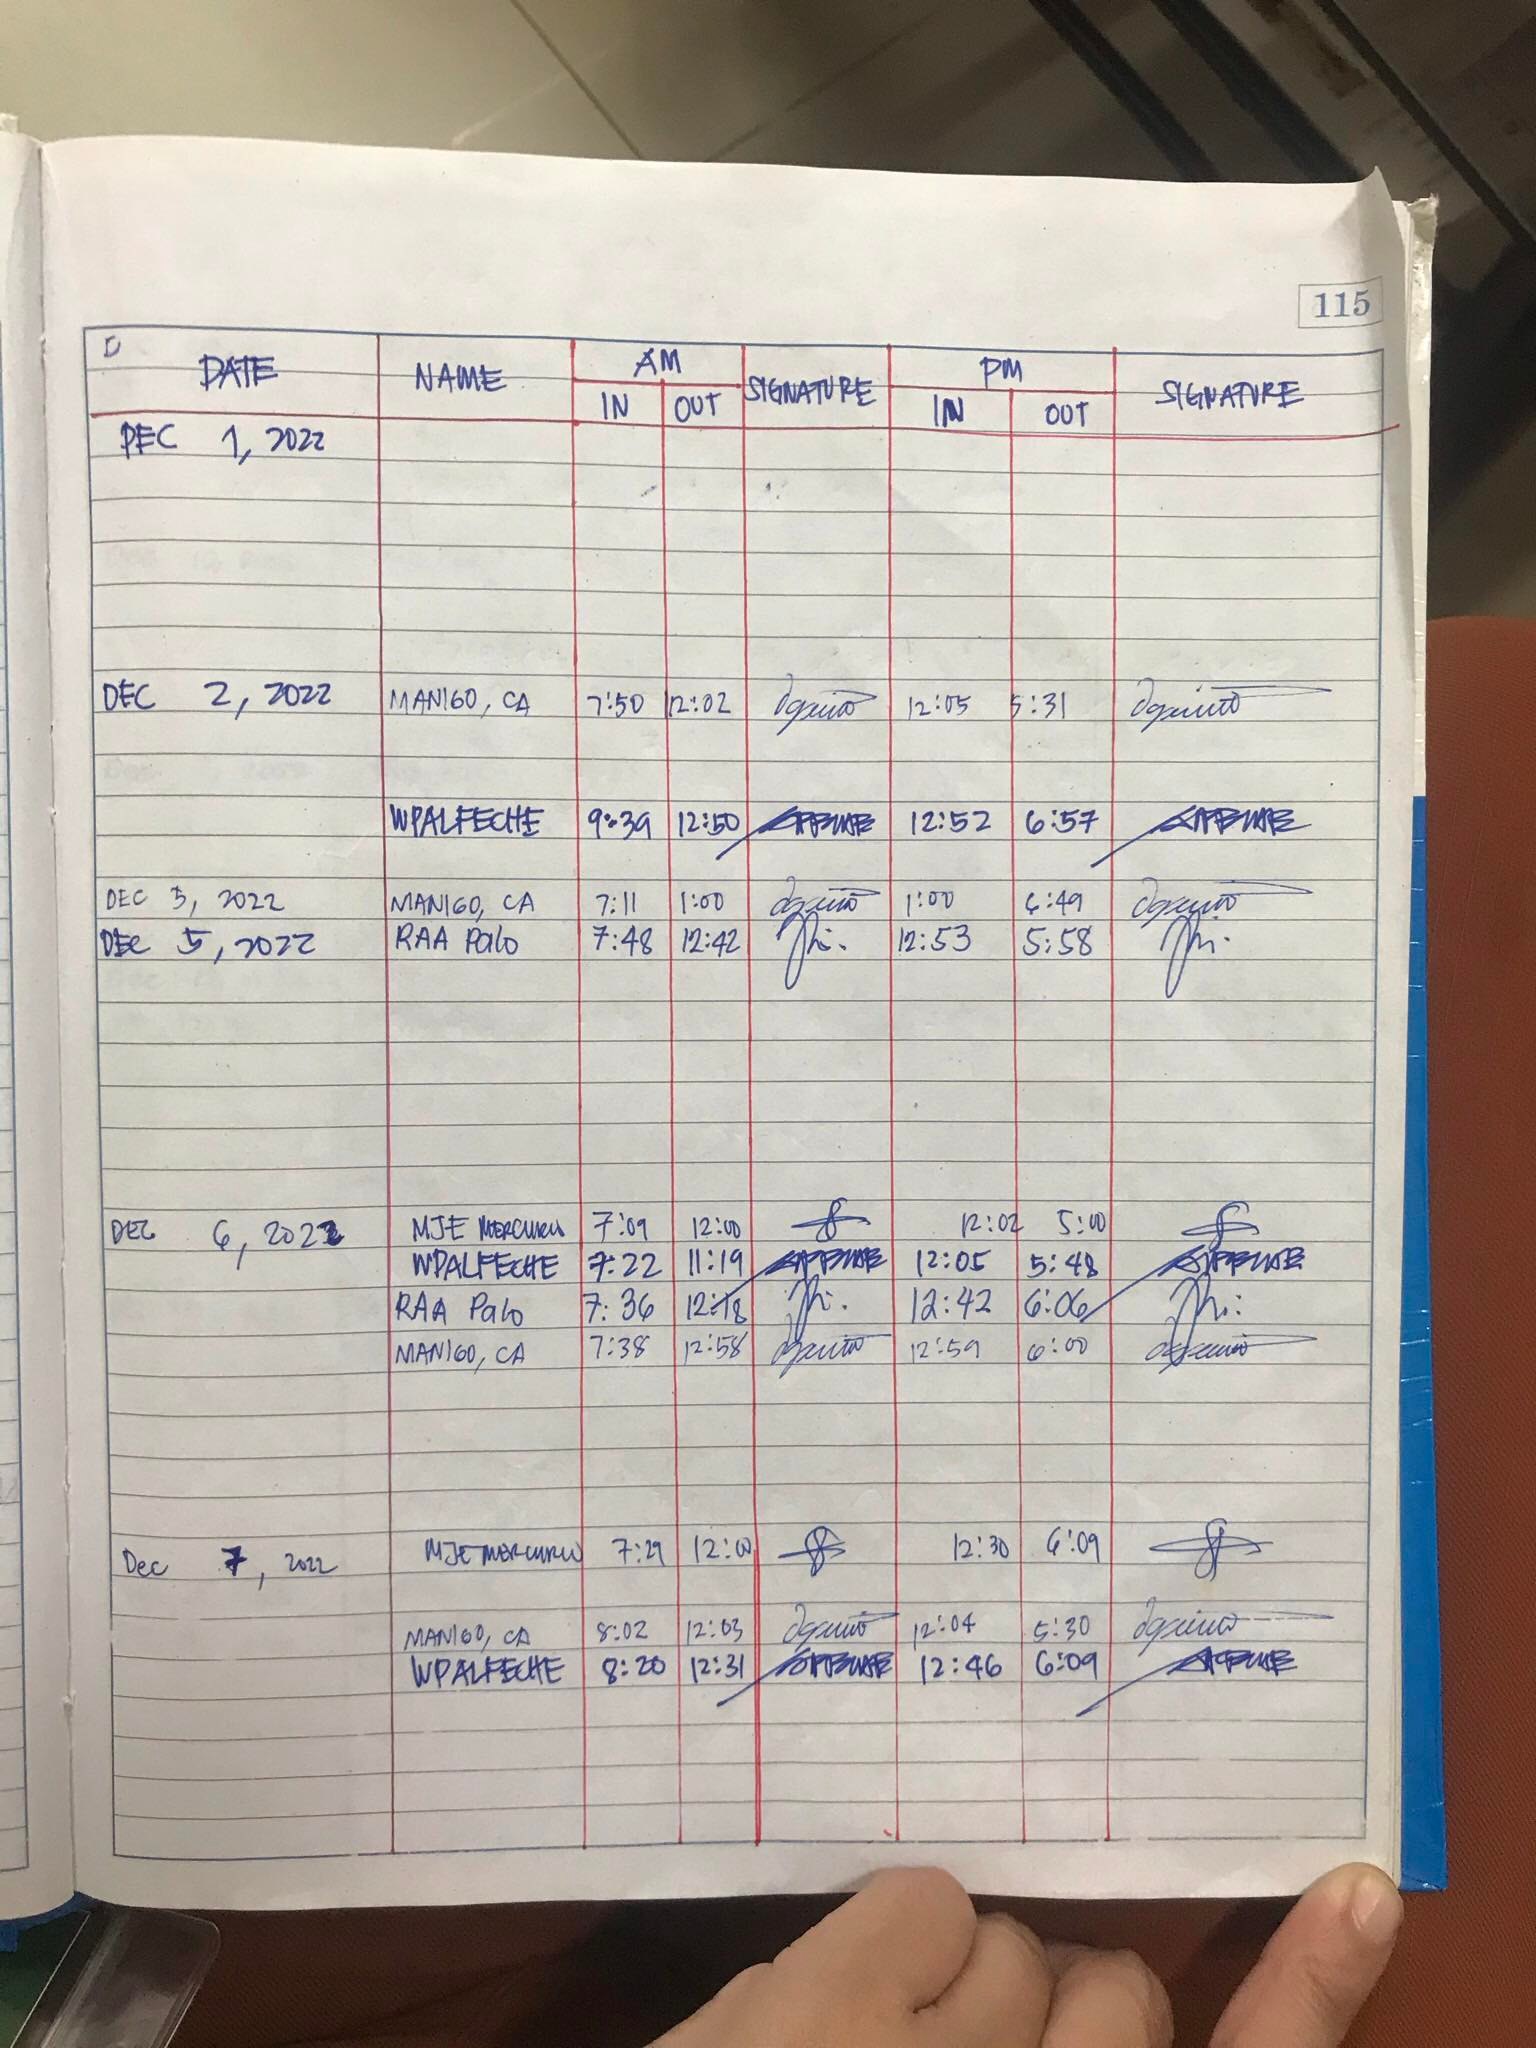 115
DATE NAME AM SIGNATURE PM SIGNATURE
IN OUT IN OUT
DEC 1, 2022
DEC 2, 2022 MANIGO, CA 7:50 12:02 12:05 5:31
WPALFECHE 9:39 12:50 12:52 6:57
DEC 3, 2022 MANIGO, CA 7:11 1:00 1:00 6:49
DEC 5, 2022 RAA Palo 7:48 12:42 12:53 5:58
DEC 6, 2022 MJE MERCURIO 7:09 12:00 12:02 5:00
WPALFECHE 7:22 11:19 12:05 5:48
RAA Palo 7:36 12:18 12:42 6:06
MANIGO, CA 7:38 12:58 12:59 6:00
Dec 7, 2022 MJE MERCURIO 7:29 12:00 12:30 6:09
MANIGO, CA 8:02 12:03 12:04 5:30
WPALFECHE 8:20 12:31 12:46 6:09